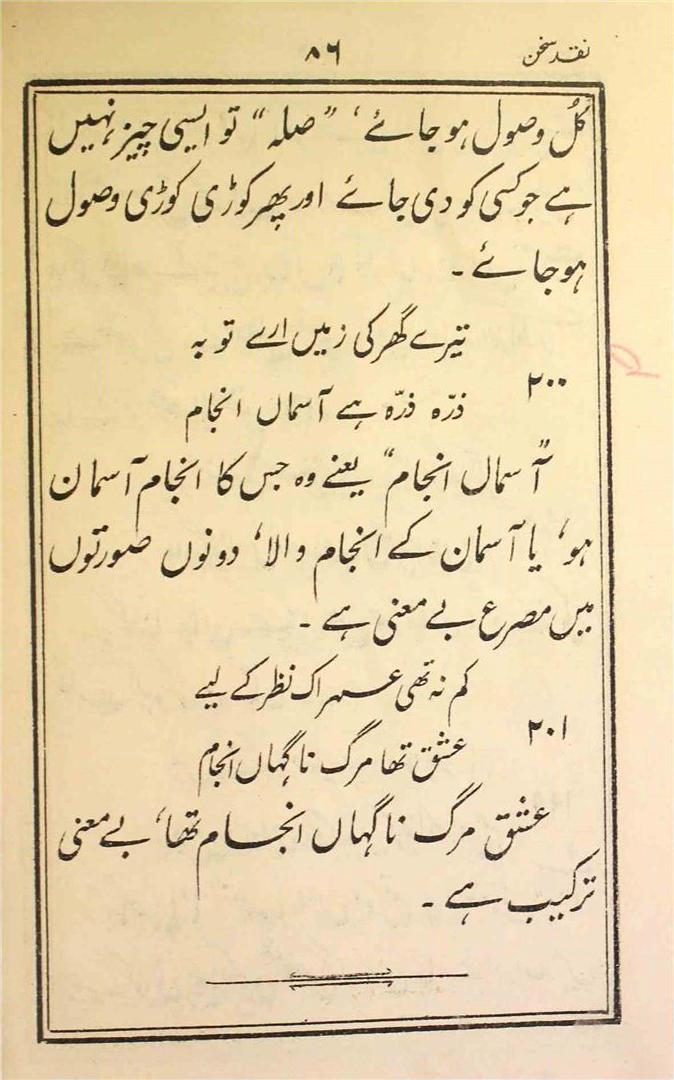 نقد سخن
۸۶
کُل وصول ہو جائے، "صلہ" تو ایسی چیز نہیں
ہے جو کسی کو دی جائے اور پھر کوڑی کوڑی وصول
ہو جائے۔
تیرے گھر کی زمیں ارے توبہ
۲۰۰
ذرّہ ذرّہ ہے آسماں انجام
"آسماں انجام" یعنے وہ جس کا انجام آسمان
ہو، یا آسمان کے انجام والا، دونوں صورتوں
میں مصرع بے معنی ہے۔
کم نہ تھی عمر اک نظر کے لیے
۲۰۱
عشق تھا مرگ ناگہاں انجام
عشق مرگ ناگہاں انجام تھا، بے معنی
ترکیب ہے۔